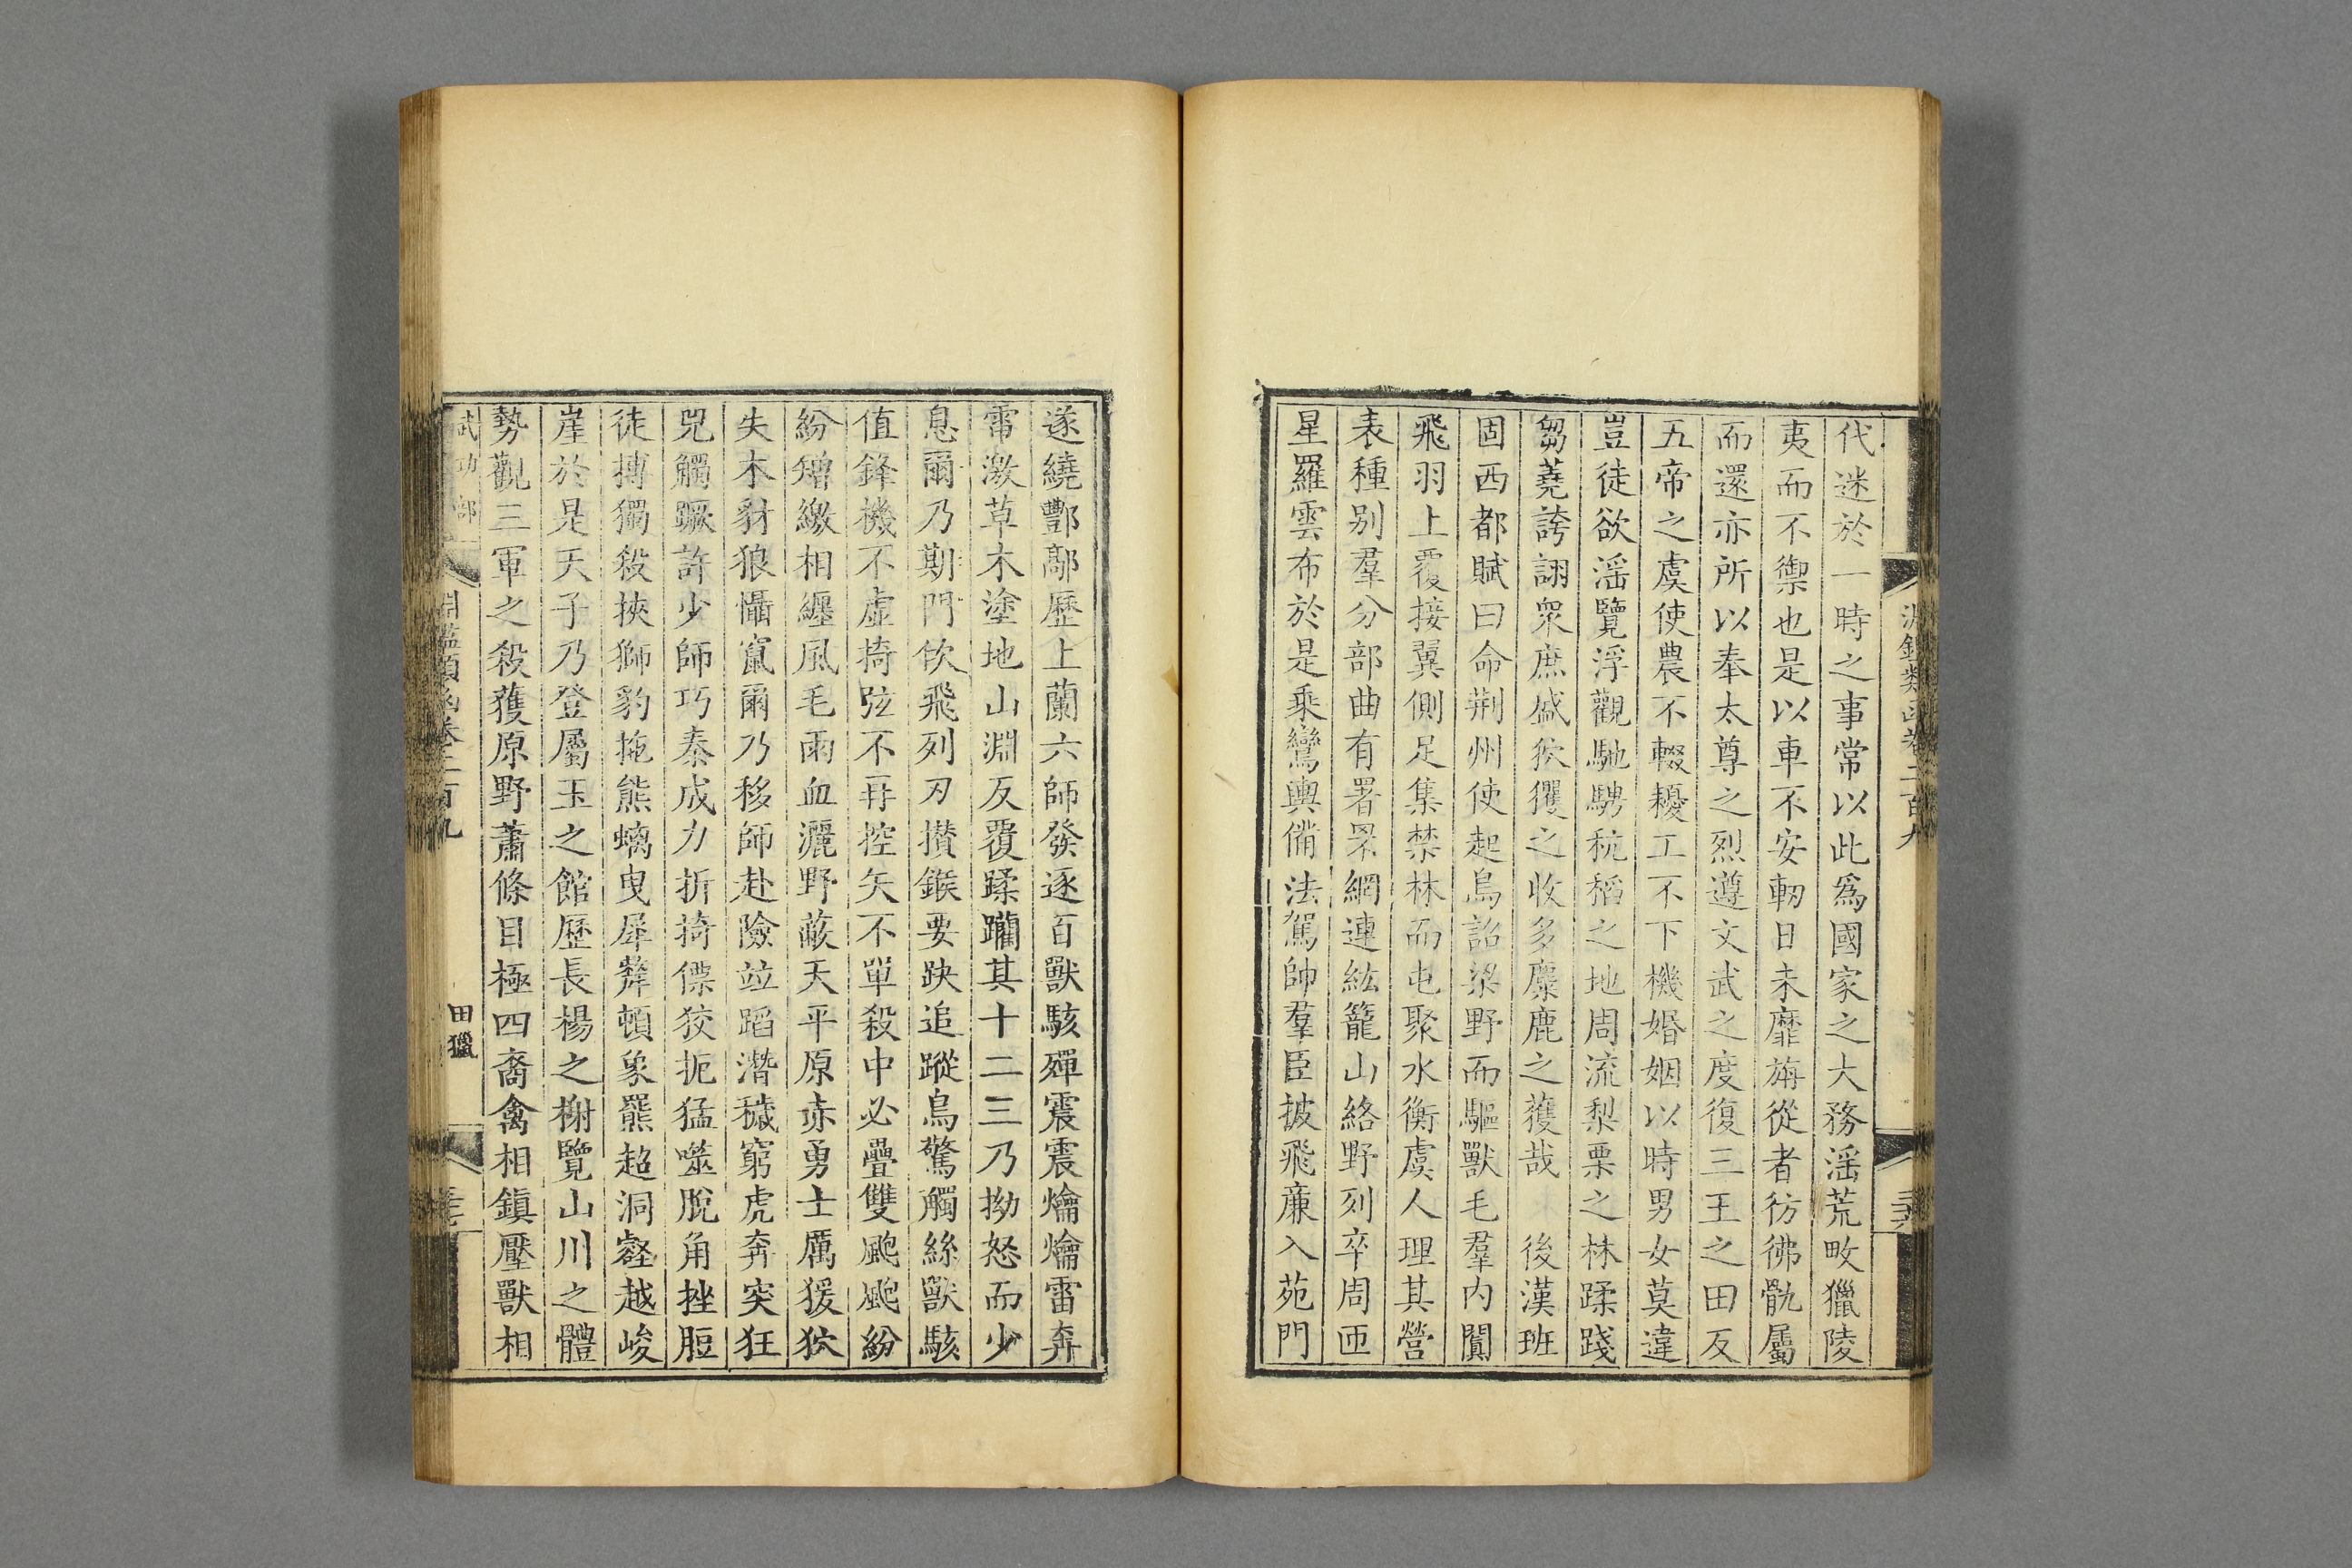 代迷於一時之事常以此爲國家之大務淫荒畋獵陵
夷而不禦也是以車不安軔日未靡旃從者彷彿骫屬
而還亦所以奉太尊之烈遵文武之度復三王之田反
五帝之虞使農不輟耰工不下機婚姻以時男女莫違
豈徒欲淫覽浮觀馳騁秔稻之地周流梨栗之林蹂踐
芻蕘誇詡衆庶盛狖玃之收多麋鹿之獲哉 後漢班
固西都賦曰命荆州使起鳥詔梁野而驅獸毛羣内闐
飛羽上覆接翼側足集禁林而屯聚水衡虞人理其營
表種别羣分部曲有署罘網連紘籠山絡野列卒周匝
星羅雲布於是乘鸞輿備法駕帥羣臣披飛廉入苑門
遂繞酆鄗歷上蘭六師發逐百獸駭殫震震爚爚雷奔
電激草木塗地山淵反覆蹂躪其十二三乃拗怒而少
息爾乃期門佽飛列刃攅鍭要趹追蹤鳥驚觸絲獸駭
值鋒機不虚掎弦不再控矢不單殺中必疊雙颮颮紛
紛矰繳相纏風毛雨血灑野蔽天平原赤勇士厲猨狖
失木豺狼懾竄爾乃移師赴險竝蹈潛穢窮虎奔突狂
兕觸蹶許少師巧秦成力折掎僄狡扼猛噬脱角挫脰
徒搏獨殺挾獅豹拖熊螭曳犀犛頓象羆超洞壑越峻
崖於是天子乃登屬玉之館歷長楊之榭覽山川之體
勢觀三軍之殺獲原野蕭條目極四裔禽相鎮壓獸相
武功部 淵鑑類函卷二百九 田獵